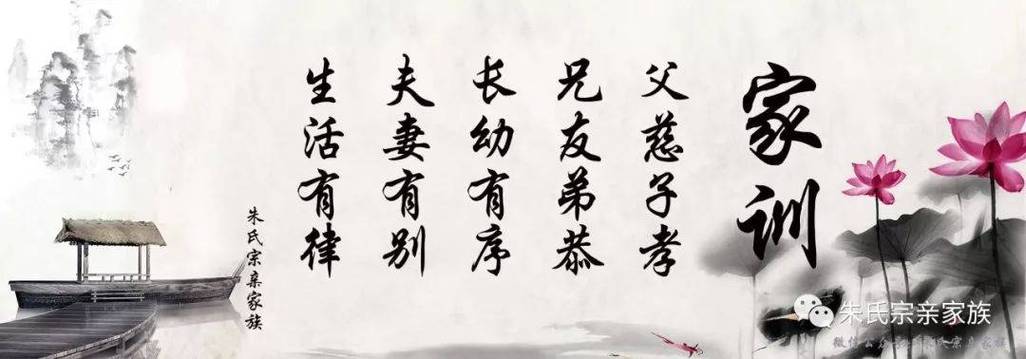 家训
父慈子孝
兄友弟恭
长幼有序
夫妻有别
生活有律
朱氏宗亲家族
朱氏宗亲家族